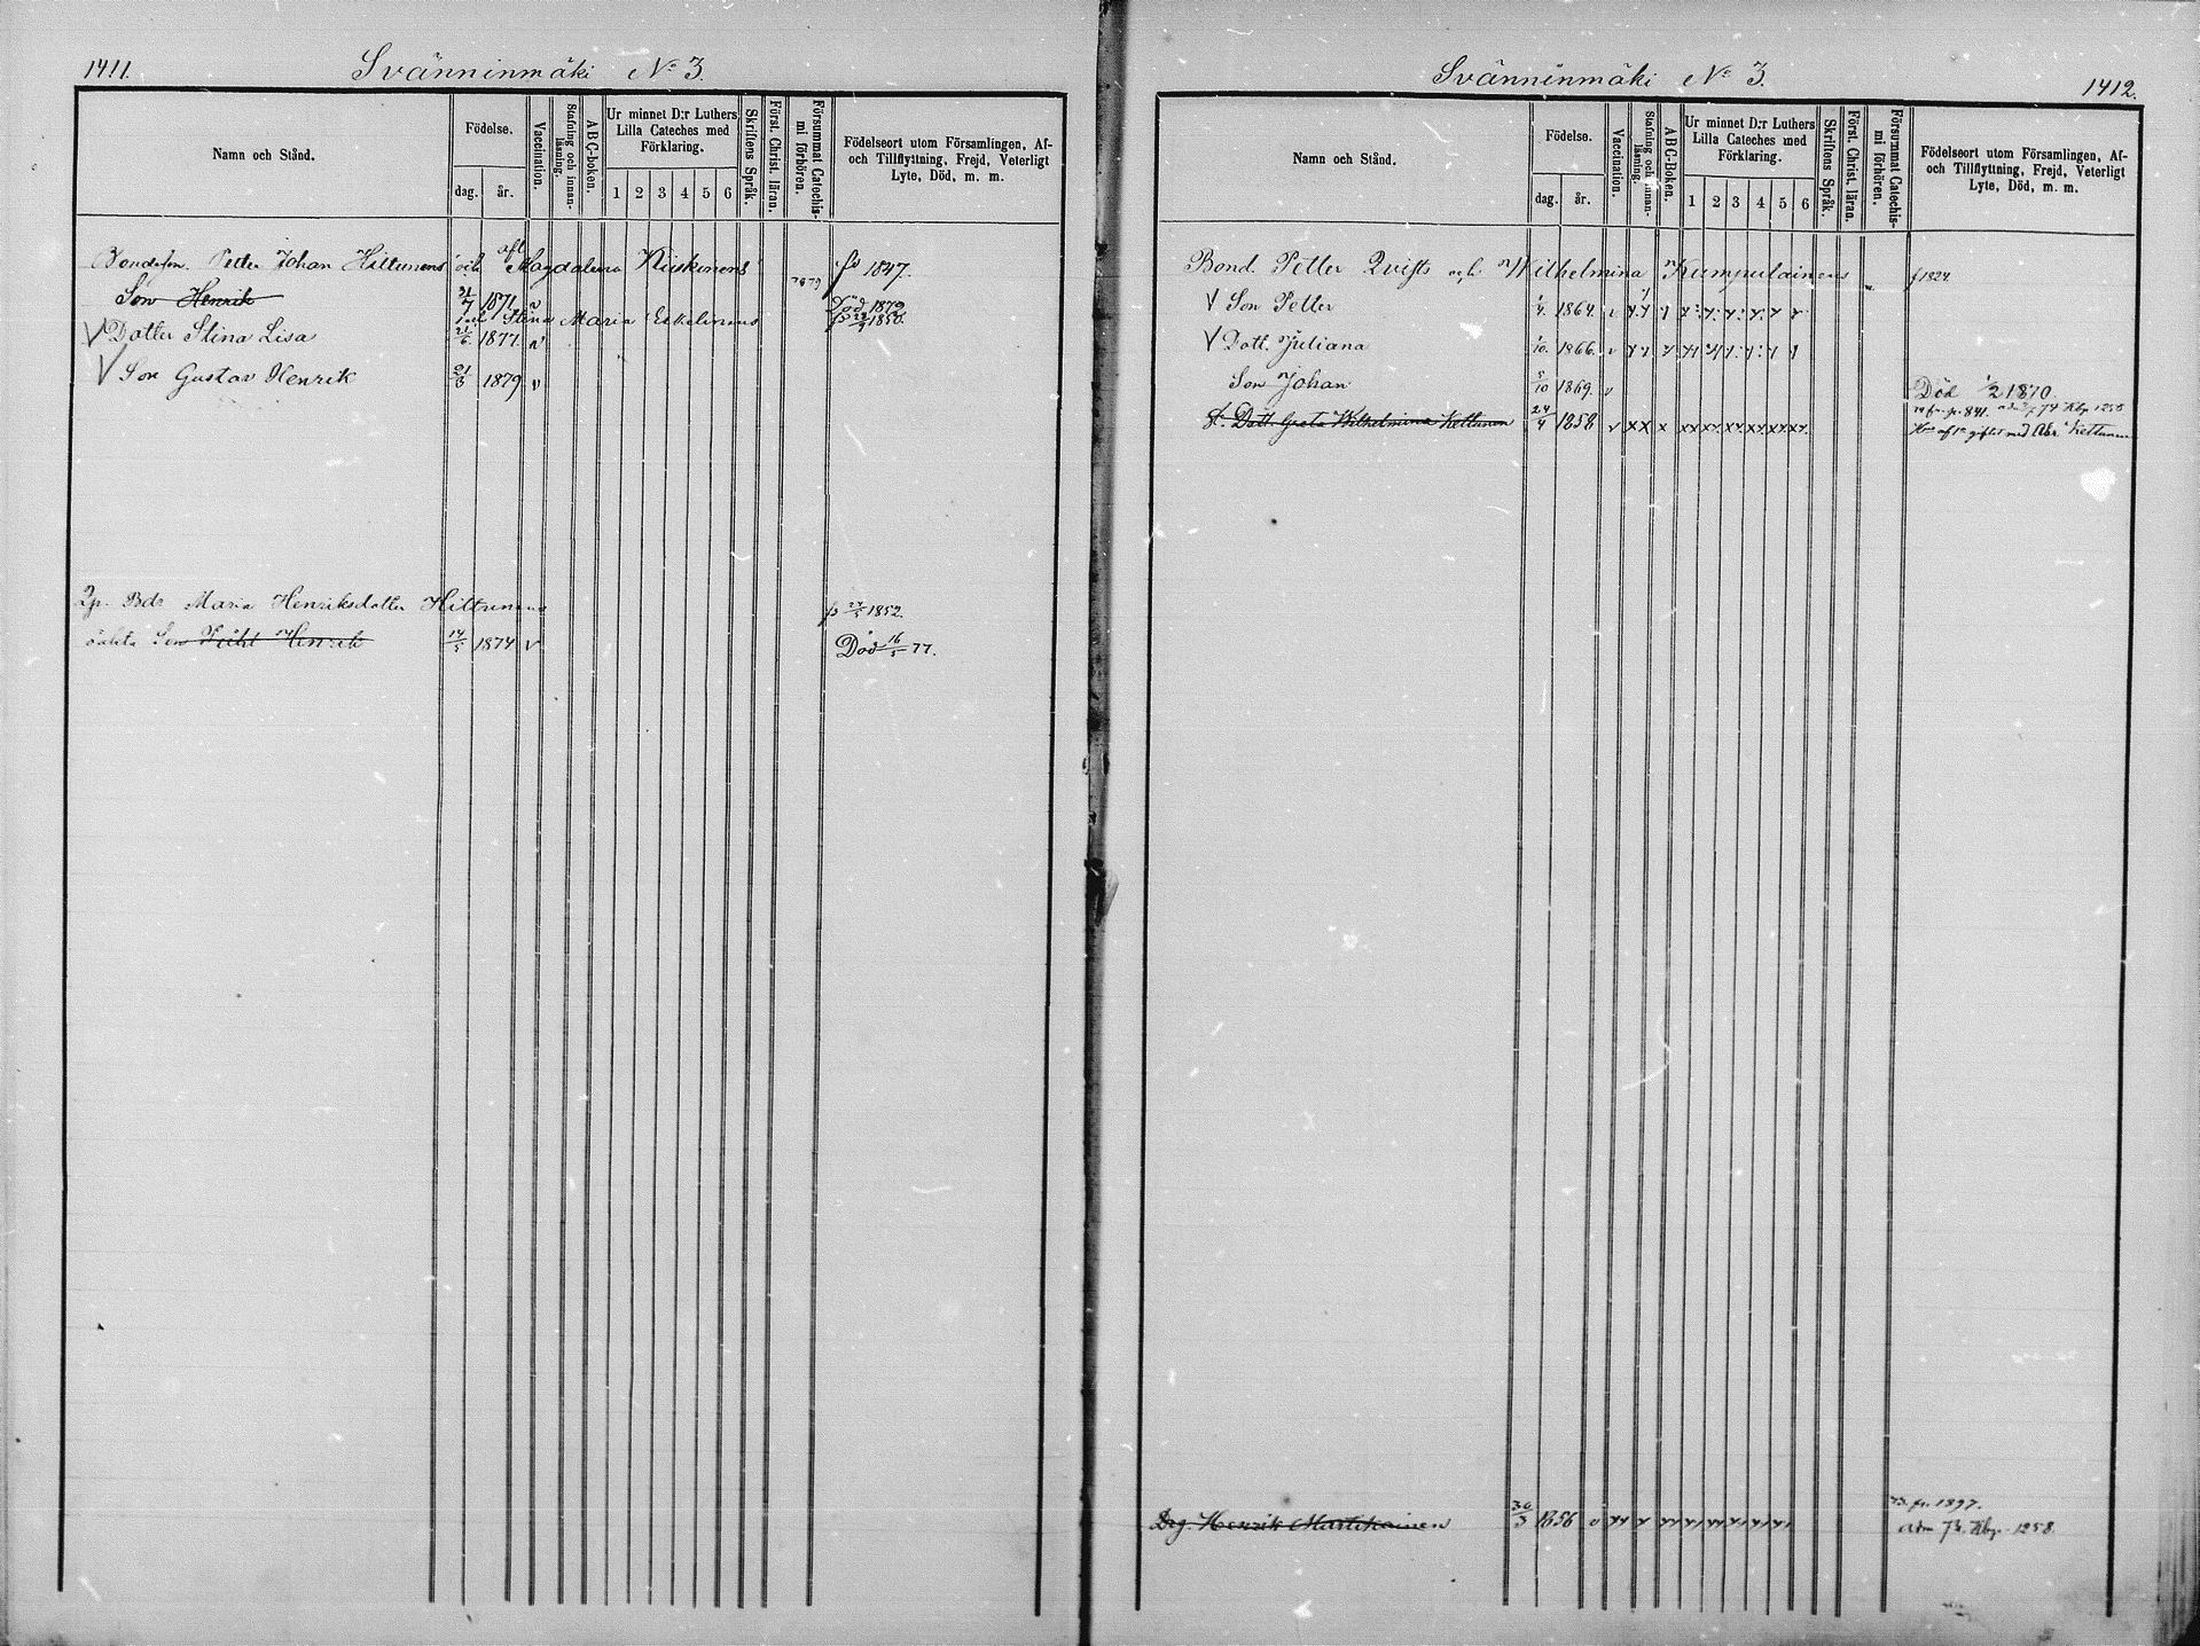 1411.
Svänninmäki No 3.
Namn och Stånd.
Födelse.
dag.
år.
Vaccination.
Stafning och innan-läsning.
ABC-boken.
Ur minnet D:r Luthers
Lilla Cateches med
Förklaring.
1 2 3 4 5 6
Skriftens Språk.
Först. Christ. läran.
Försummat Catechis-
mi förhören.
Födelseort utom Församlingen, Af-
och Tillflyttning, Frejd, Veterligt
Lyte, Död, m. m.
Petter Johan Hiltunens och afl Magdalena Kiiskinens 1879 fs 1847.
Son Henrik 31/7 1871 v Död 1872
Stina Maria Eskelinens
V Dotter Stina Lisa 1877. v
V Son Gustav Henrik 21/3 1879 v
Maria Henriksdotter Hiltunens 1852.
Son Henrik 14/5 1874 v Död 16/5 77.
Svänninmäki No 3.
1412.
Namn och Stånd.
Födelse.
dag.
år.
Vaccination.
Stafning och innan-läsning.
ABC-boken.
Ur minnet D:r Luthers
Lilla Cateches med
Förklaring.
1 2 3 4 5 6
Skriftens Språk.
Först. Christ. läran.
Försummat Catechis-
mi förhören.
Födelseort utom Församlingen, Af-
och Tillflyttning, Frejd, Veterligt
Lyte, Död, m. m.
Bond. Petter Qvists och Wilhelmina Kumpulainens f 1824
V Son Petter 1864. v
V Dott. Juliana 1866. v
Son Johan 5/10 1869. v Död 1/2 1870.
fr. p. 841.
Dott. Greta Wilhelmina Kettunen 24/4 1858 v x x x xx xx xx xx xx xx gift med Abr. Kettunen
fr. 1397.
Drg. Henrik Martikainen 30/3 1856 v 1258.